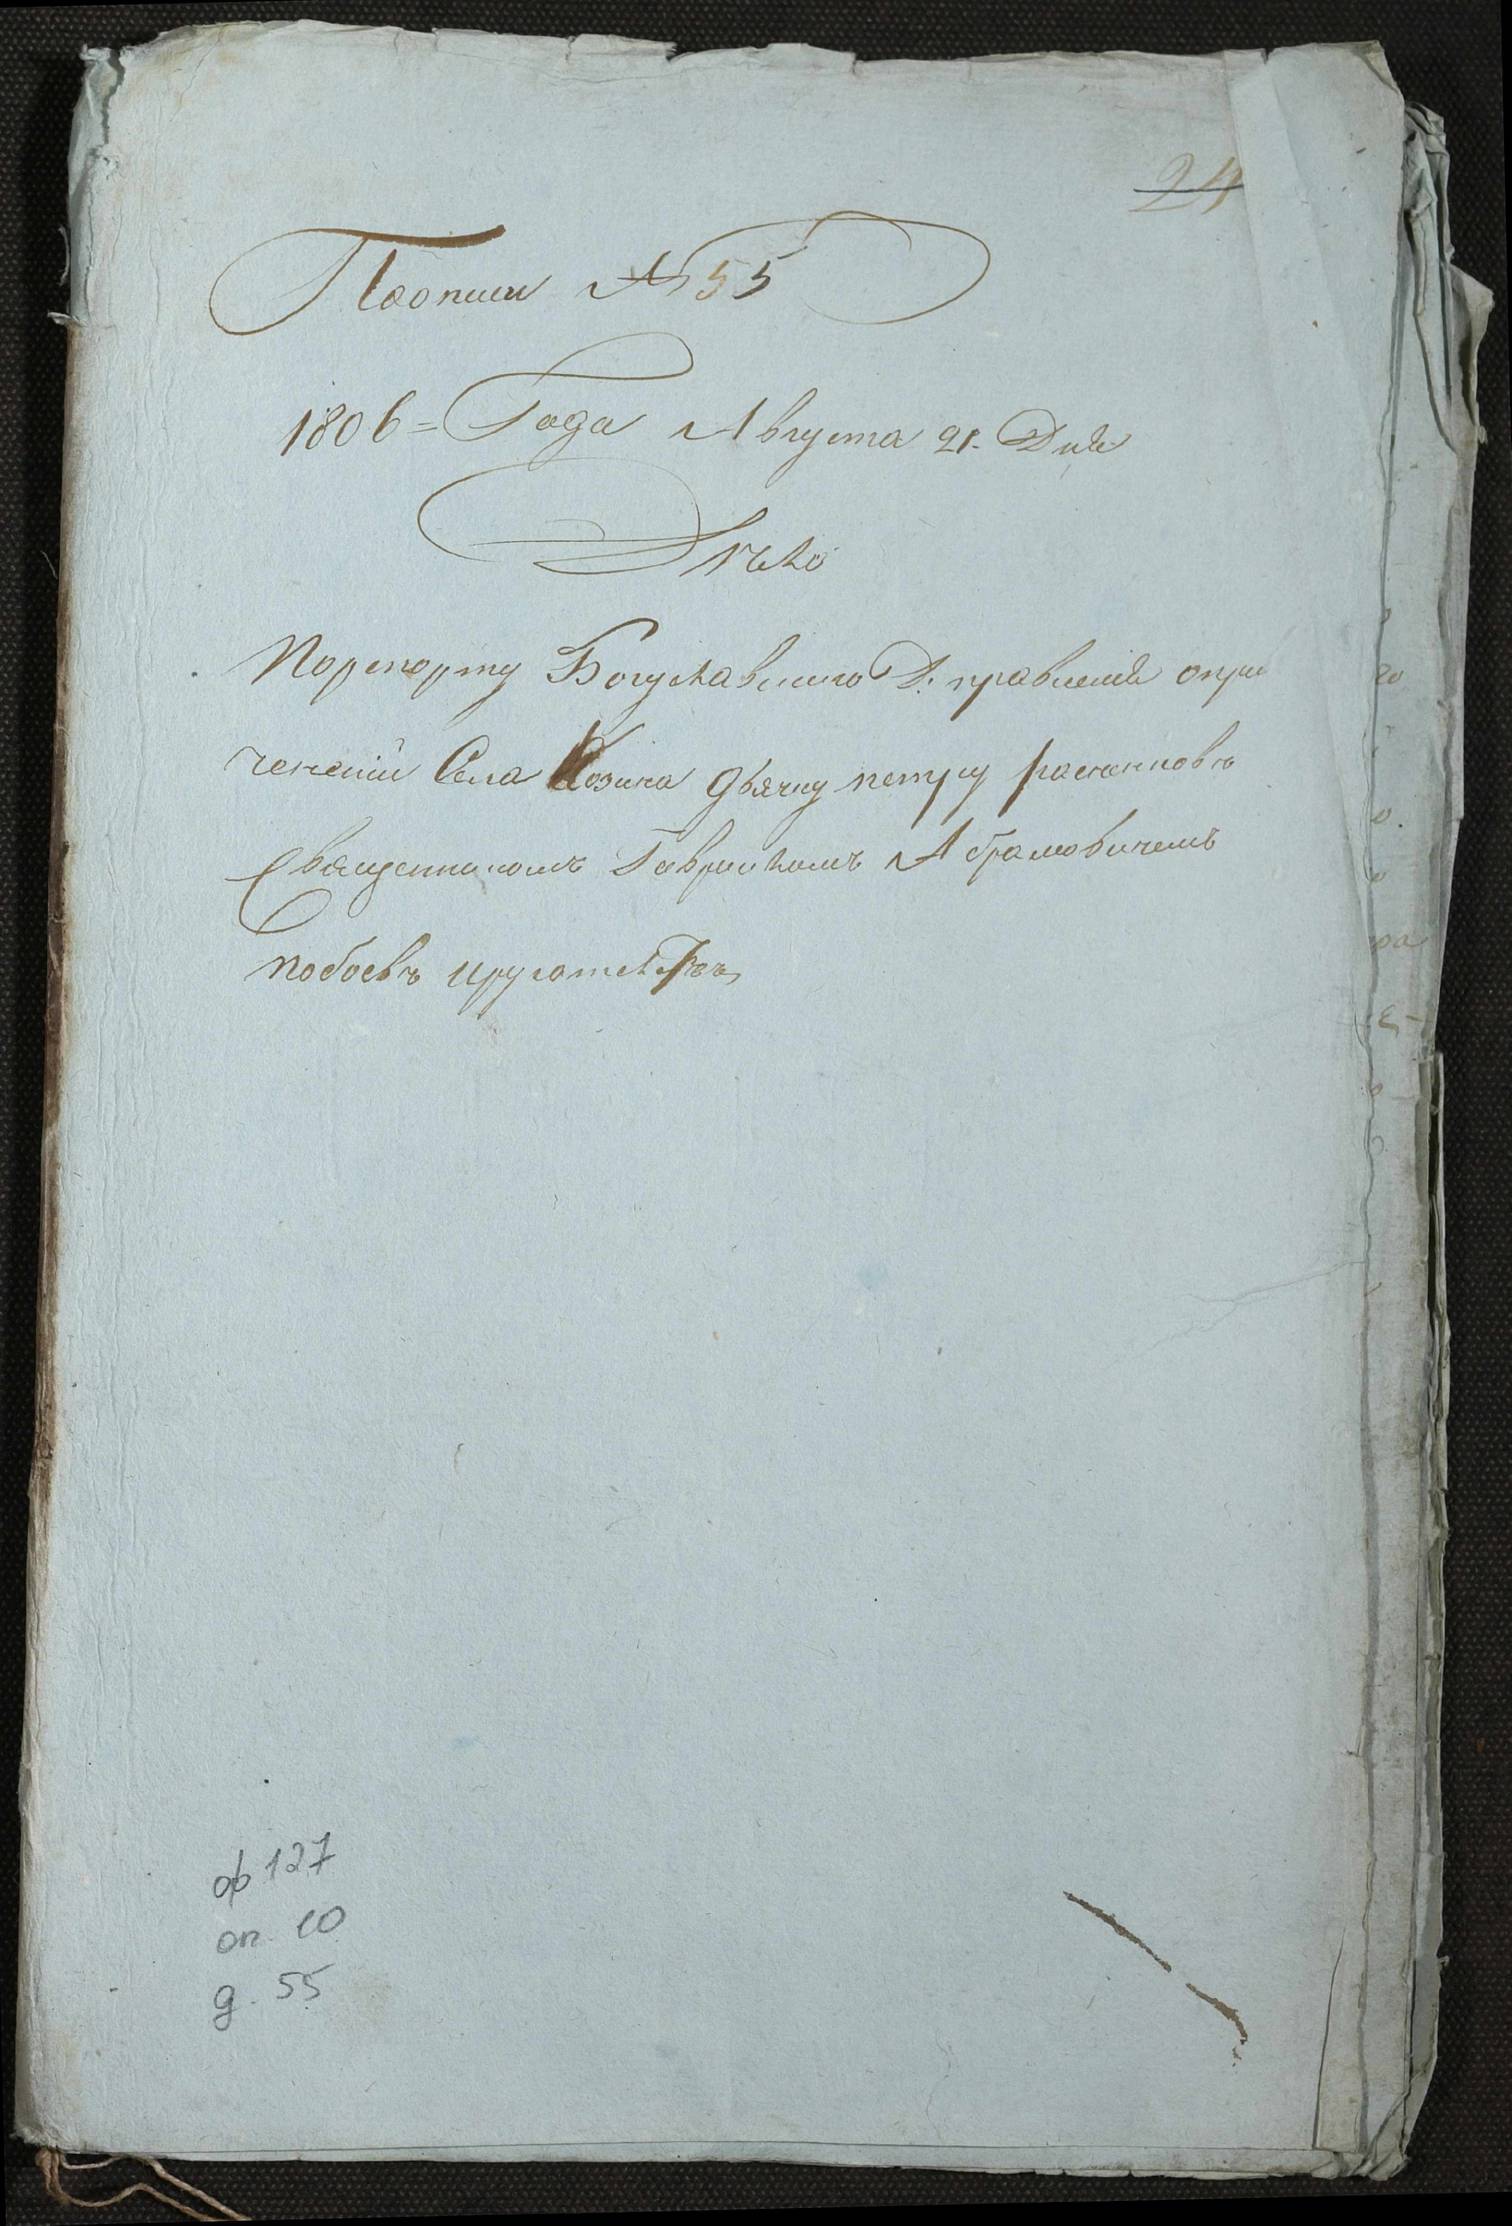 24
По описи № 55
1806 = Года Августа 21. Дня
Дѣло
по репорту Богуславского Д. правления о при
чинении Села Козина дьячку петру
Священникомъ Гавриломъ Абрамовичемъ
побоевъ и ругателствъ
ф 127
оп. 10
д. 55